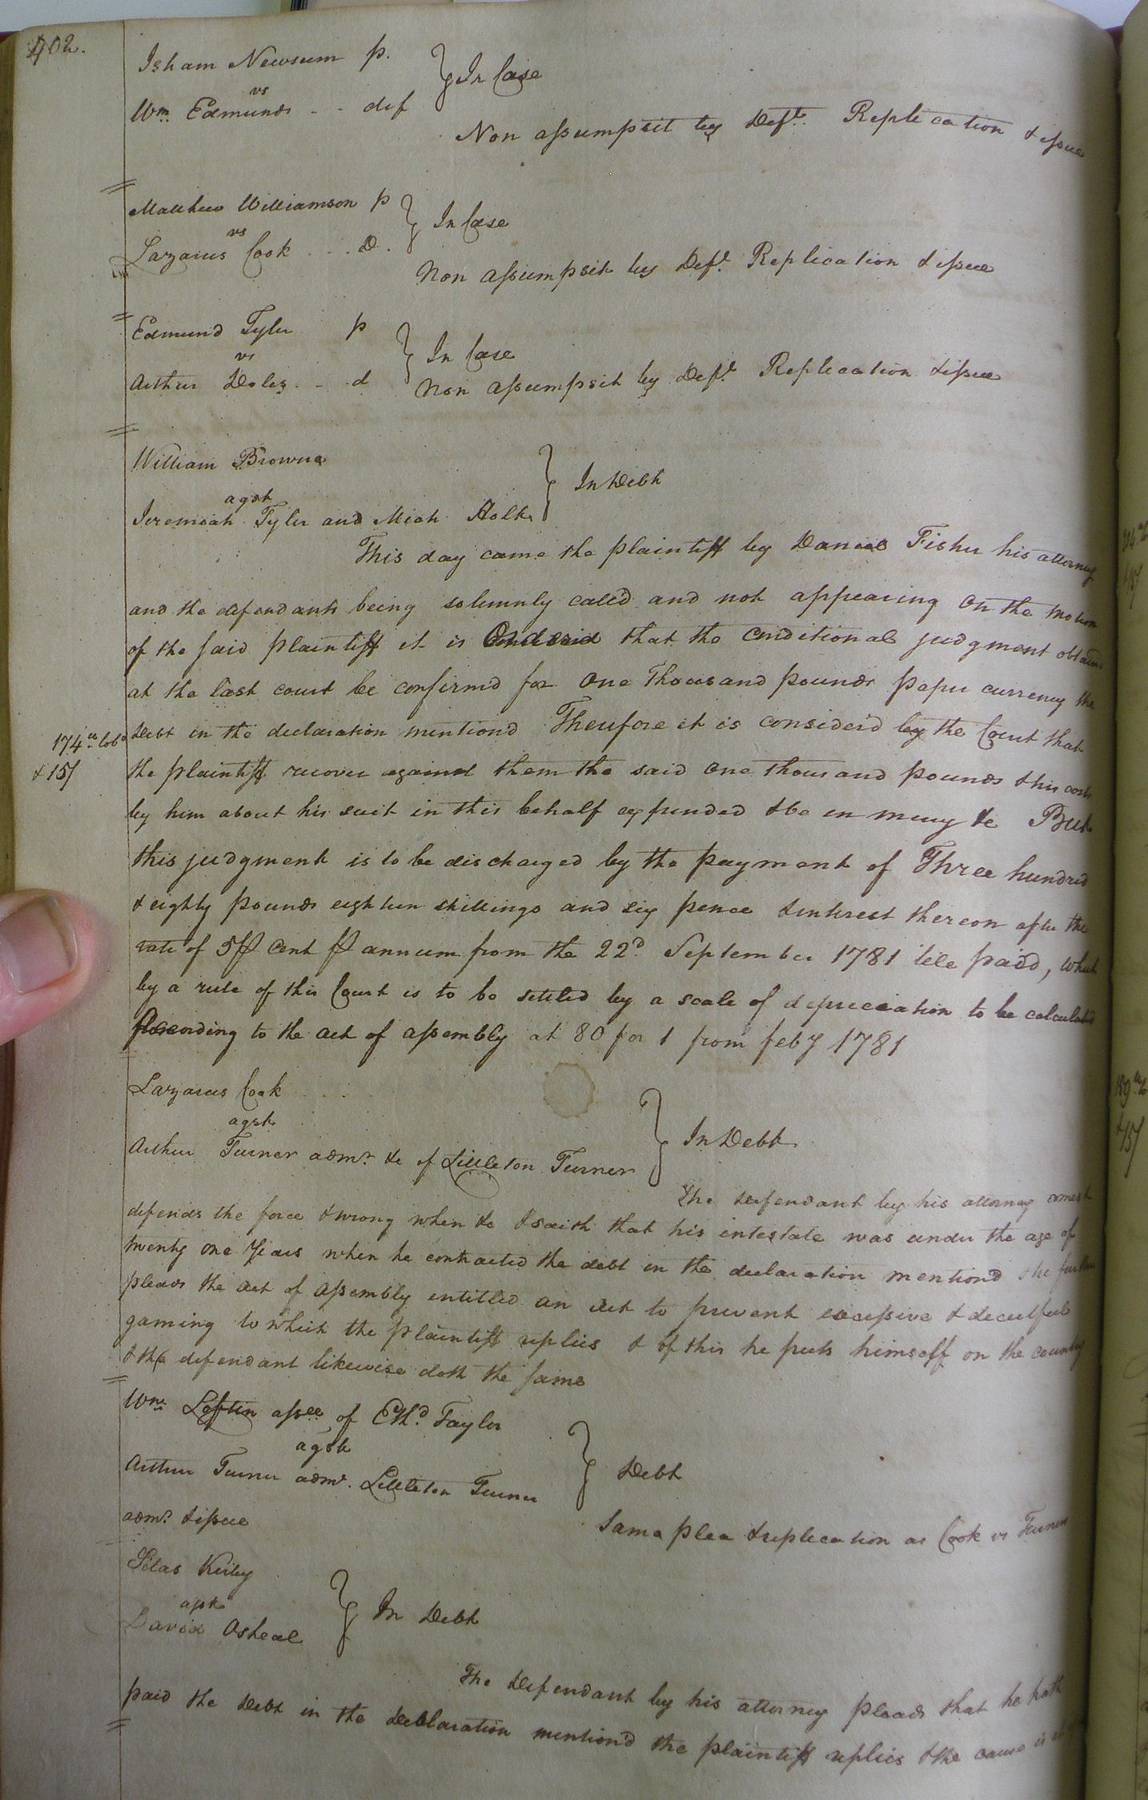 402.
Isham Newsum p.
vs
Wm. Edmunds - - def
} In Case
Non assumpsit by Deft. Replication & issue
Matthew Williamson p
vs
Lazarus Cook . . . D.
} In Case
Non assumpsit by Deft. Replication & issue
Edmund Tyler p
vs
Arthur Doles - - d
} In Case
Non assumpsit by Deft. Replication & issue
William Browne
agst
Jeremiah Tyler and Micah Holt
} In Debt
This day came the plaintiff by Daniel Fisher his attorney
and the defendants being solemnly called and not appearing On the motion
of the said plaintiff it is Ordered that the Conditional judgment obtain'd
at the last court be confirmd for One Thousand pounds paper currency the
174 lb
& 15/
Debt in the declaration mentiond Therefore it is consider'd by the Court that
the plaintiff recover against them the said One thousand pounds & his costs
by him about his suit in this behalf expended & be in mercy &c But
this judgment is to be discharged by the payment of Three hundred
& eighty pounds eighteen shillings and six pence & interest thereon after the
rate of 5 ₱ Cent ₱ annum from the 22d September 1781 till paid, which
by a rule of this Court is to be settled by a scale of depreciation to be calculated
According to the act of assembly at 80 for 1 from feby 1781
Lazarus Cook
agst
Arthur Turner admr. &c of Littleton Turner
} In Debt
The defendant by his attorney comes &
defends the force & wrong when &c & saith that his intestate was under the age of
twenty one Years when he contracted the debt in the declaration mentiond & he further
pleads the act of assembly entitled an act to prevent excessive & deceitful
gaming to which the plaintiff replies & of this he puts himself on the country
& the defendant likewise doth the same
Wm. Loftin assee of Ethd. Taylor
agst
Arthur Turner admr. Littleton Turner
} Debt
Same plea & replication as Cook vs Turners
admr. & issue
Silas Kirby
agst
David Osheal
} In Debt
The defendant by his attorney pleads that he hath
paid the debt in the declaration mentiond the plaintiff replies & the cause is